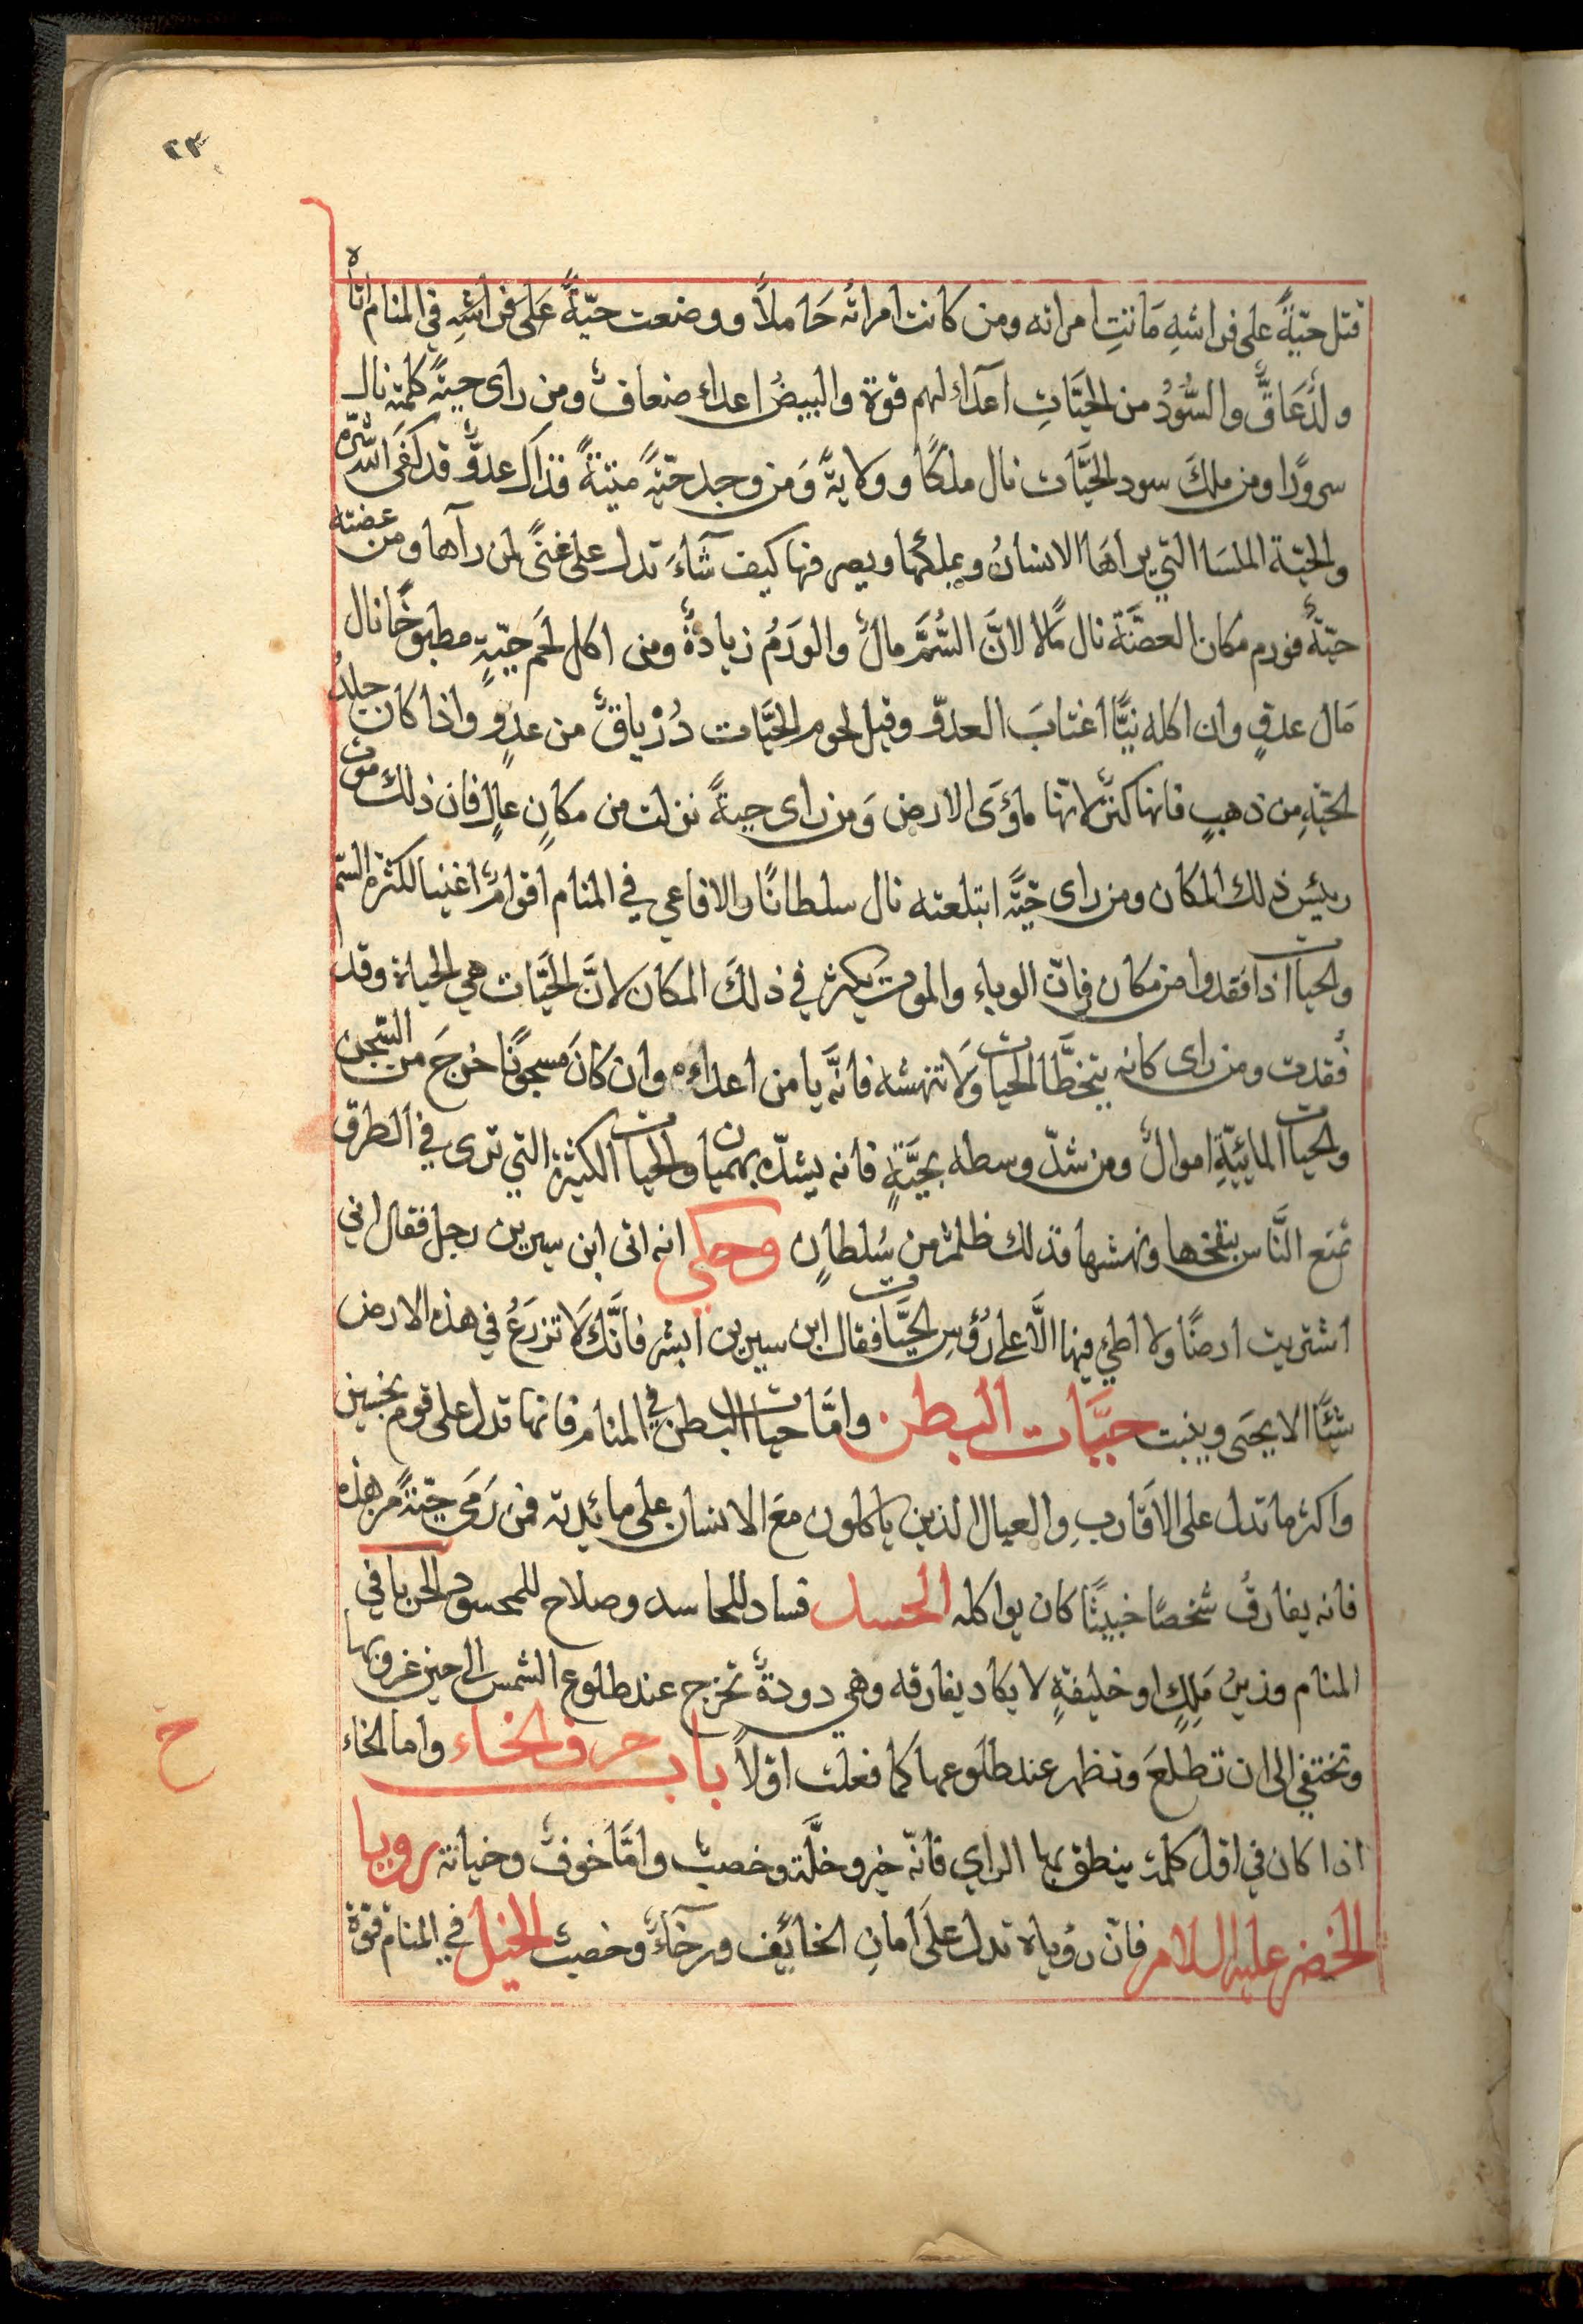 ٢٣
قتل حيّةً على فراشهِ مَاتتِ امراته ومن كانت امراتُه حَاملاً ووضعت حيّةً عَلى فراشهِ في المنام اتاه
ولدٌ عَاقٌّ والسُّودُ من الحيَّاتِ اعدآءٌ لهم قوة والبيضُ اعداء ضعافٌ ومن راى حيةً كلمته نال
سرورًا ومن ملكَ سود الحيَّات نال ملكًا وولايةً وَمن وجد حيّةً ميتةً فذاك عدوٌّ قد كفى الله شرّه
والحيّة الملسَا التي يراهَا الانسانُ ويملكُها ويصرفها كيف شآءَ تدل على غنىً لمن رآها ومن عضته
حيّةٌ فورم مكان العضّة نال مَالا لانَّ السُّمَّ مالٌ والورَمُ زيادةٌ ومن اكل لحَم حيّةٍ مطبوخًا نال
مَال عدوٍ وان اكله نيًّا اغتابَ العدوّ وقيل لحوم الحيَّات دُرْياقٌ من عدوٍ واذا كان جلدُ
الحيّةِ من ذهبٍ فانها كنزٌ لانّها مأوَى الارض وَمن راى حيةً نزلت من مكانٍ عالٍ فان ذلك موت
رئيس ذلك المكان ومن راى حيَّة ابتلعته نال سلطانًا والافاعي في المنام اقوامٌ اغنيا لكثرة السّم
والحيات اذا فقدوا من مكان فانّ الوباء والموت يكثر في ذلكَ المكان لانَّ الحَيَّات هي الحياة وقد
فُقدت ومن راى كانه يتخطَّا الحيات وَلَا تنهشه فانَّه يامن اعداءه وان كانَ مسجونًا خرجَ من السّجن
والحيات المائيّةِ اموالٌ ومن شدّ وسطه بحيَّةٍ فانه يشدّه بهميان والحيات الكثيرة التي ترى في الطرق
تمنع النَّاس بنفخها ونهشها فذلك ظلمٌ من سُلطانٍ وحكي انه اتى ابن سيرين رجل فقال اني
اشتريت ارضًا ولا اطئ فيها الَّا على رُؤسِ الحيَّات فقال ابن سيرين ابشر فأنَّك لَا تزرَعُ في هذه الارض
شئيًا الا يحيى وينبت حيَّات البطن وامَّا حيات البطن في المنام فانها تدل على قوم نجسين
واكثر ما تدل على الاقَارب والعيال الذين ياكلون معَ الانسان على مائدته فمن رَمَى حيّةً من هذه
فانه يفارقُ شخصًا خبيثًا كان يواكله الحسد فساد للحاسد وصلاح للمحسود الحربا في
المنام وزيرُ مَلِكٍ او خليفةٍ لا يكاد يفارقه وهي دودةٌ تخرج عند طلوع الشمس الى حين غروبها
وتختفي الى ان تطلعَ وتظهر عند طلوعها كما فعلت اولاً باب حرف الخاء واما الخاء
ح
اذا كان في اول كلمة ينطق بها الراي فانّه خير وخلَّة وخصبٌ وامَّا خوفٌ وخيانة رويا
الخضر عليه السلام فان رؤياه تدل على أمانِ الخائف ورخآءٌ وخصبٌ الخيل في المنام قوّة